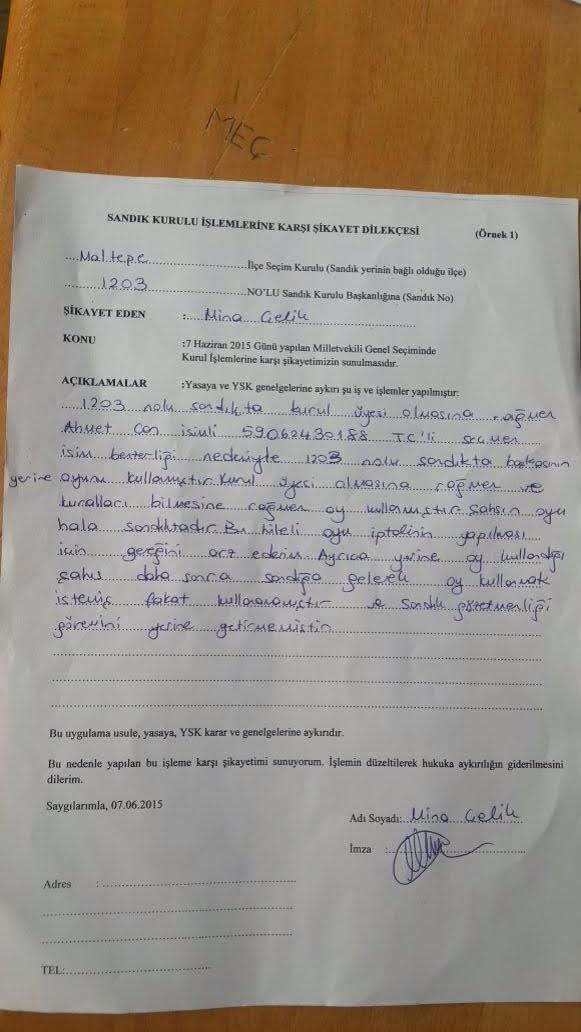 MEÇ
SANDIK KURULU İŞLEMLERİNE KARŞI ŞİKAYET DİLEKÇESİ (Örnek 1)
....Maltepe....İlçe Seçim Kurulu (Sandık yerinin bağlı olduğu ilçe)
....1203....NO'LU Sandık Kurulu Başkanlığına (Sandık No)
ŞİKAYET EDEN :..Mina Çelik....
KONU :7 Haziran 2015 Günü yapılan Milletvekili Genel Seçiminde
Kurul İşlemlerine karşı şikayetimizin sunulmasıdır.
AÇIKLAMALAR :Yasaya ve YSK genelgelerine aykırı şu iş ve işlemler yapılmıştır:
1203 nolu sandıkta kurul üyesi olmasına rağmen
Ahmet Can isimli 59062430188 T.C'li seçmen
isim benzerliği nedeniyle 1203 nolu sandıkta başkasının
yerine oyunu kullanmıştır. Kurul üyesi olmasına rağmen ve
kuralları bilmesine rağmen oy kullanmıştır. Şahsın oyu
hala sandıktadır. Bu hileli oyun iptalinin yapılması
için gereğini arz ederim. Ayrıca yerine oy kullandığı
şahıs daha sonra sandığa gelerek oy kullanmak
istemiş fakat kullanamamıştır ve sandık gözetmenliği
görevini yerine getirmemiştir.
Bu uygulama usule, yasaya, YSK karar ve genelgelerine aykırıdır.
Bu nedenle yapılan bu işleme karşı şikayetimi sunuyorum. İşlemin düzeltilerek hukuka aykırılığın giderilmesini
dilerim.
Saygılarımla, 07.06.2015
Adı Soyadı: Mina Çelik
İmza :
Adres :
TEL: